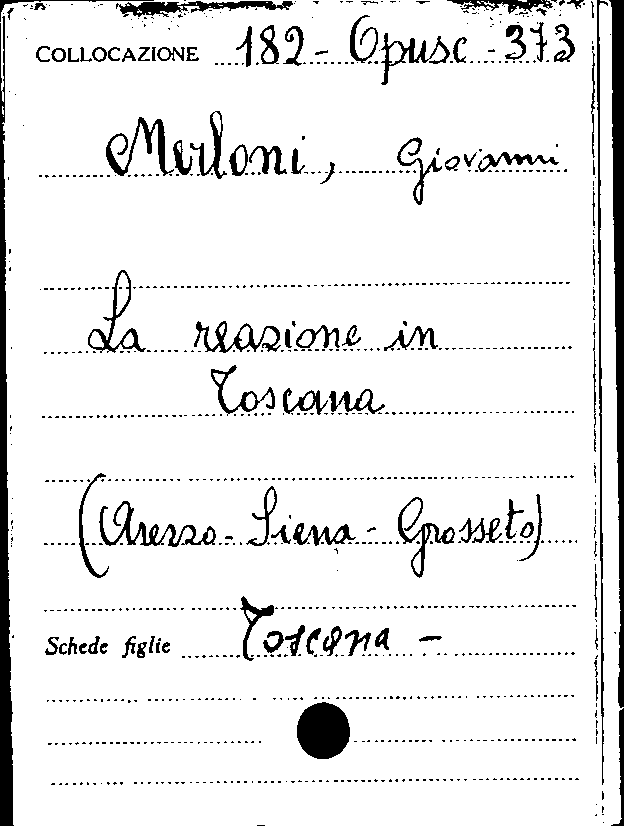 COLLOCAZIONE 182 - Opusc - 373
Merloni, Giovanni
La reazione in
Toscana
(Arezzo - Siena - Grosseto)
Schede figlie Toscana -